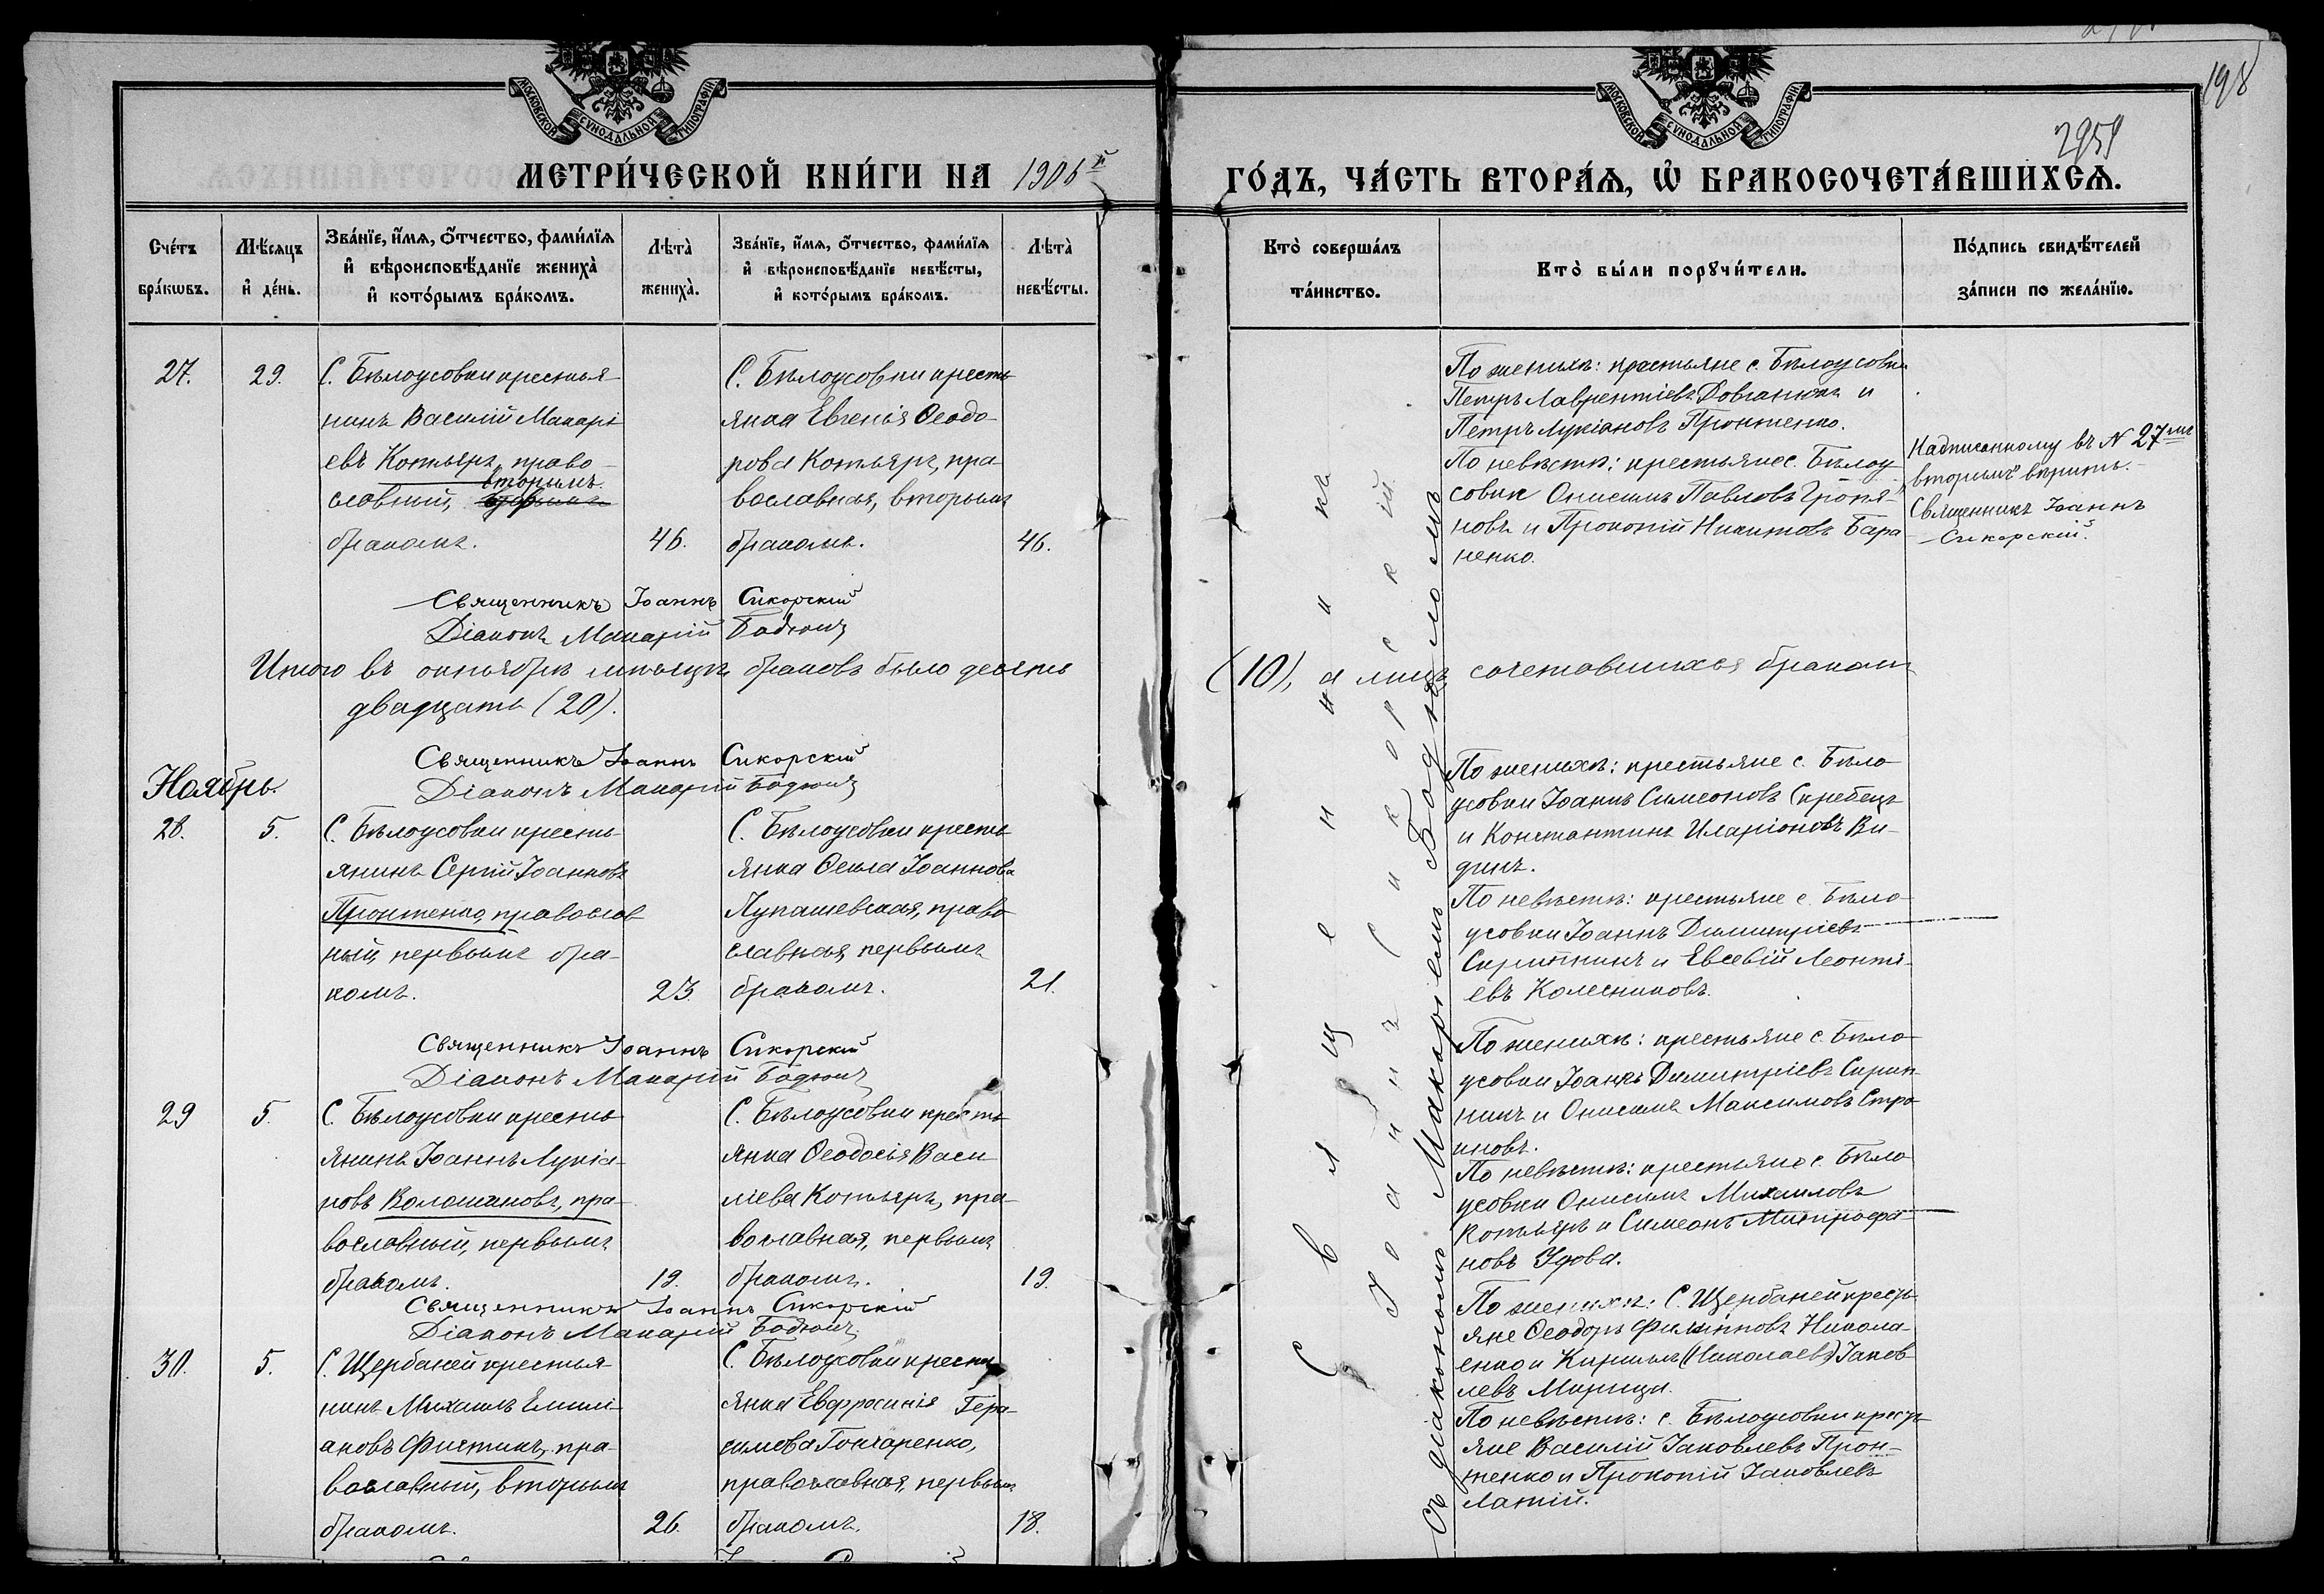 198
2959
МОСКОВСКОЙ СѴНОДАЛЬНОЙ ТИПОГРАФІИ
МОСКОВСКОЙ СѴНОДАЛЬНОЙ ТИПОГРАФІИ
МЕТРИ́ЧЕСКОЙ КНИ́ГИ НА 1906й
ГО́ДЪ, ЧА́СТЬ ВТОРА́Ѧ, Ѡ҆ БРАКОСОЧЕТА́ВШИХСѦ.
Сче́тъ бра́кѡвъ.
Мѣ́сяцъ и҆ де́нь.
Зва́нїе, и҆́мѧ, ѻ҆́тчество, фами́лїѧ
и҆ вѣроисповѣ́данїе жениха̀
и҆ кото́рымъ бра́комъ.
Лѣта̀ жениха̀.
Зва́нїе, и҆́мѧ, ѻ҆́тчество, фами́лїѧ
и҆ вѣроисповѣ́данїе невѣ́сты,
и҆ кото́рымъ бра́комъ.
Лѣта̀ невѣ́сты.
Кто̀ соверша́лъ та́инство.
Кто̀ бы́ли порꙋчи́тели.
По́дпись свидѣ́телей за́писи по жела́нїю.
27.
29.
С. Бѣлоусовки крестья-
нинъ Василій Макарі-
евъ Котляръ, право-
вторымъ
славный,
бракомъ.
46.
С. Бѣлоусовки кресть-
янка Евгенія Ѳеодо-
рова Котляръ, пра-
вославная, вторымъ
бракомъ.
46.
По женихѣ: крестьяне с. Бѣлоусовки
Петръ Лаврентіевъ Довганюкъ и
Петръ Лукіановъ Пронтенко.
По невѣстѣ: крестьяне с. Бѣлоу-
совки Онисимъ Павловъ
новъ и Прокопій Никитовъ Бара-
ненко.
Надписанному въ № 27мъ
"вторымъ" вѣрить.
Священникъ Іоаннъ
Сикорскій.
Священникъ Іоаннъ Сикорскій
Діаконъ Макарій Бодюлъ
Итого въ октябрѣ мѣсяцѣ браковъ было десять
(10), а лицъ сочетавшихся бракомъ
двадцать (20).
Священникъ Іоаннъ Сикорскій
Діаконъ Макарій Бодюлъ
Ноябрь.
28.
5.
С. Бѣлоусовки кресть-
янинъ Сергій Іоанновъ
Пронтенко, православ-
ный, первымъ бра-
комъ.
23.
С. Бѣлоусовки кресть-
янка Ѳекла Іоаннова
Лупашевская, право-
славная, первымъ
бракомъ.
21.
По женихѣ: крестьяне с. Бѣло-
усовки Іоаннъ Симеоновъ Скребецъ
и Константинъ Иларіоновъ Ви-
динъ.
По невѣстѣ: крестьяне с. Бѣло-
усовки Іоаннъ Димитріевъ
Скрипникъ и Евсевій Леонті-
евъ Колесниковъ.
Священникъ Іоаннъ Сикорскій
Діаконъ Макарій Бодюлъ
29
5.
С. Бѣлоусовки кресть-
янинъ Іоаннъ Лукіа-
новъ Волошановъ, пра-
вославный, первымъ
бракомъ.
19.
С. Бѣлоусовки кресть-
янка Ѳеодосія Васи-
ліева Котляръ, пра-
вославная, первымъ
бракомъ.
19.
По женихѣ: крестьяне с. Бѣло-
усовки Іоаннъ Димитріевъ Скрип-
никъ и Онисимъ Максимовъ

По невѣстѣ: крестьяне с. Бѣло-
усовки Онисимъ Михаиловъ
Котляръ и Симеонъ Митрофа-
новъ Удова.
Священникъ Іоаннъ Сикорскій
Діаконъ Макарій Бодюлъ
30.
5.
С. Щербаней крестья-
нинъ Михаилъ Емилі-
ановъ Фистикъ, пра-
вославный, вторымъ
бракомъ.
26.
С. Бѣлоусовки кресть-
янка Евфросинія Гера-
симова Гончаренко,
православная, первымъ
бракомъ.
18.
По женихѣ: С. Щербаней кресть-
яне Ѳеодоръ Филипповъ Никола-
енко и Кириллъ (Николаевъ) Іаков-
левъ
По невѣстѣ: с. Бѣлоусовки кресть-
яне Василій Іаковлевъ Прон-
тенко и Прокопій Іаковлевъ
Латій.
Священникъ
Іоаннъ Сикорскій
Съ діакономъ Макаріемъ Бодюломъ